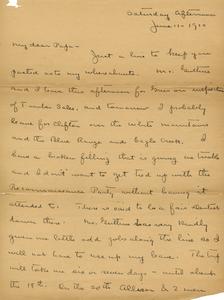 Saturday Afternoon
June 11 - 1910
My dear Papa -
Just a line to keep you
posted as to my whereabouts. Mr. Guthrie
and I leave this afternoon for on inspection
of Timber Sales. and tomorrow I probably
leave for Clifton over the White mountains
and the Blue Range and Eagle Creek. I
have a broken filling that is giving me trouble
and I didn't want to get tied up with the
Reconnaissance Party without having it
attended to. There is said to be a fair dentist
down there. Mr. Guthrie is very kindly
giving me little odd jobs along the line so I
will not have to use up my leave. The trip
will take me six or seven days - until about
the 18th. On the 20th Allison & 2 men